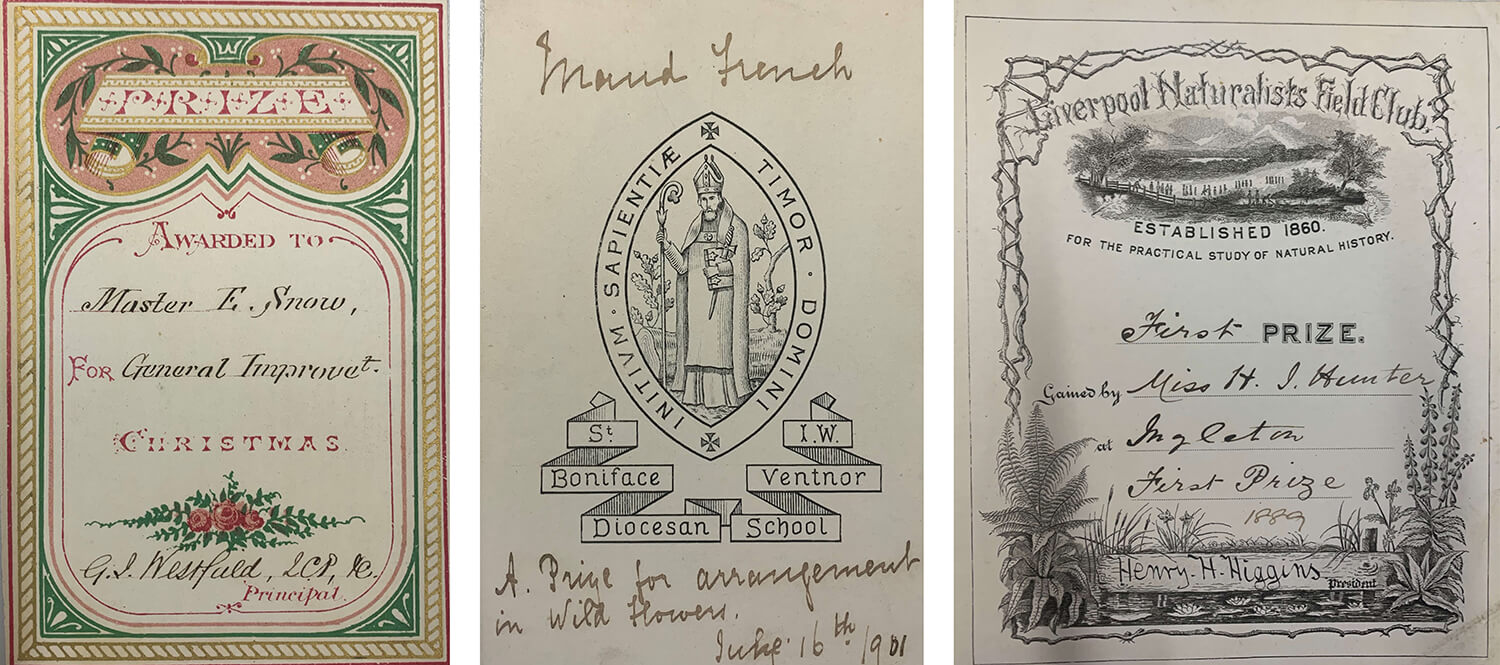 PRIZE
AWARDED TO
Master E. Snow,
FOR General Improvet.
CHRISTMAS
G.J. Westfield, LCP, &c.
Principal.
Maud French
INITIVM · SAPIENTIÆ TIMOR · DOMINI
St. I.W.
Boniface Ventnor
Diocesan School
A. Prize for arrangement
in Wild Flowers.
June 16th 1901
Liverpool Naturalists Field Club.
ESTABLISHED 1860.
FOR THE PRACTICAL STUDY OF NATURAL HISTORY.
First PRIZE.
Gained by Miss H. J. Hunter
at Ingleton
First Prize
1889
Henry. H. Higgins
President